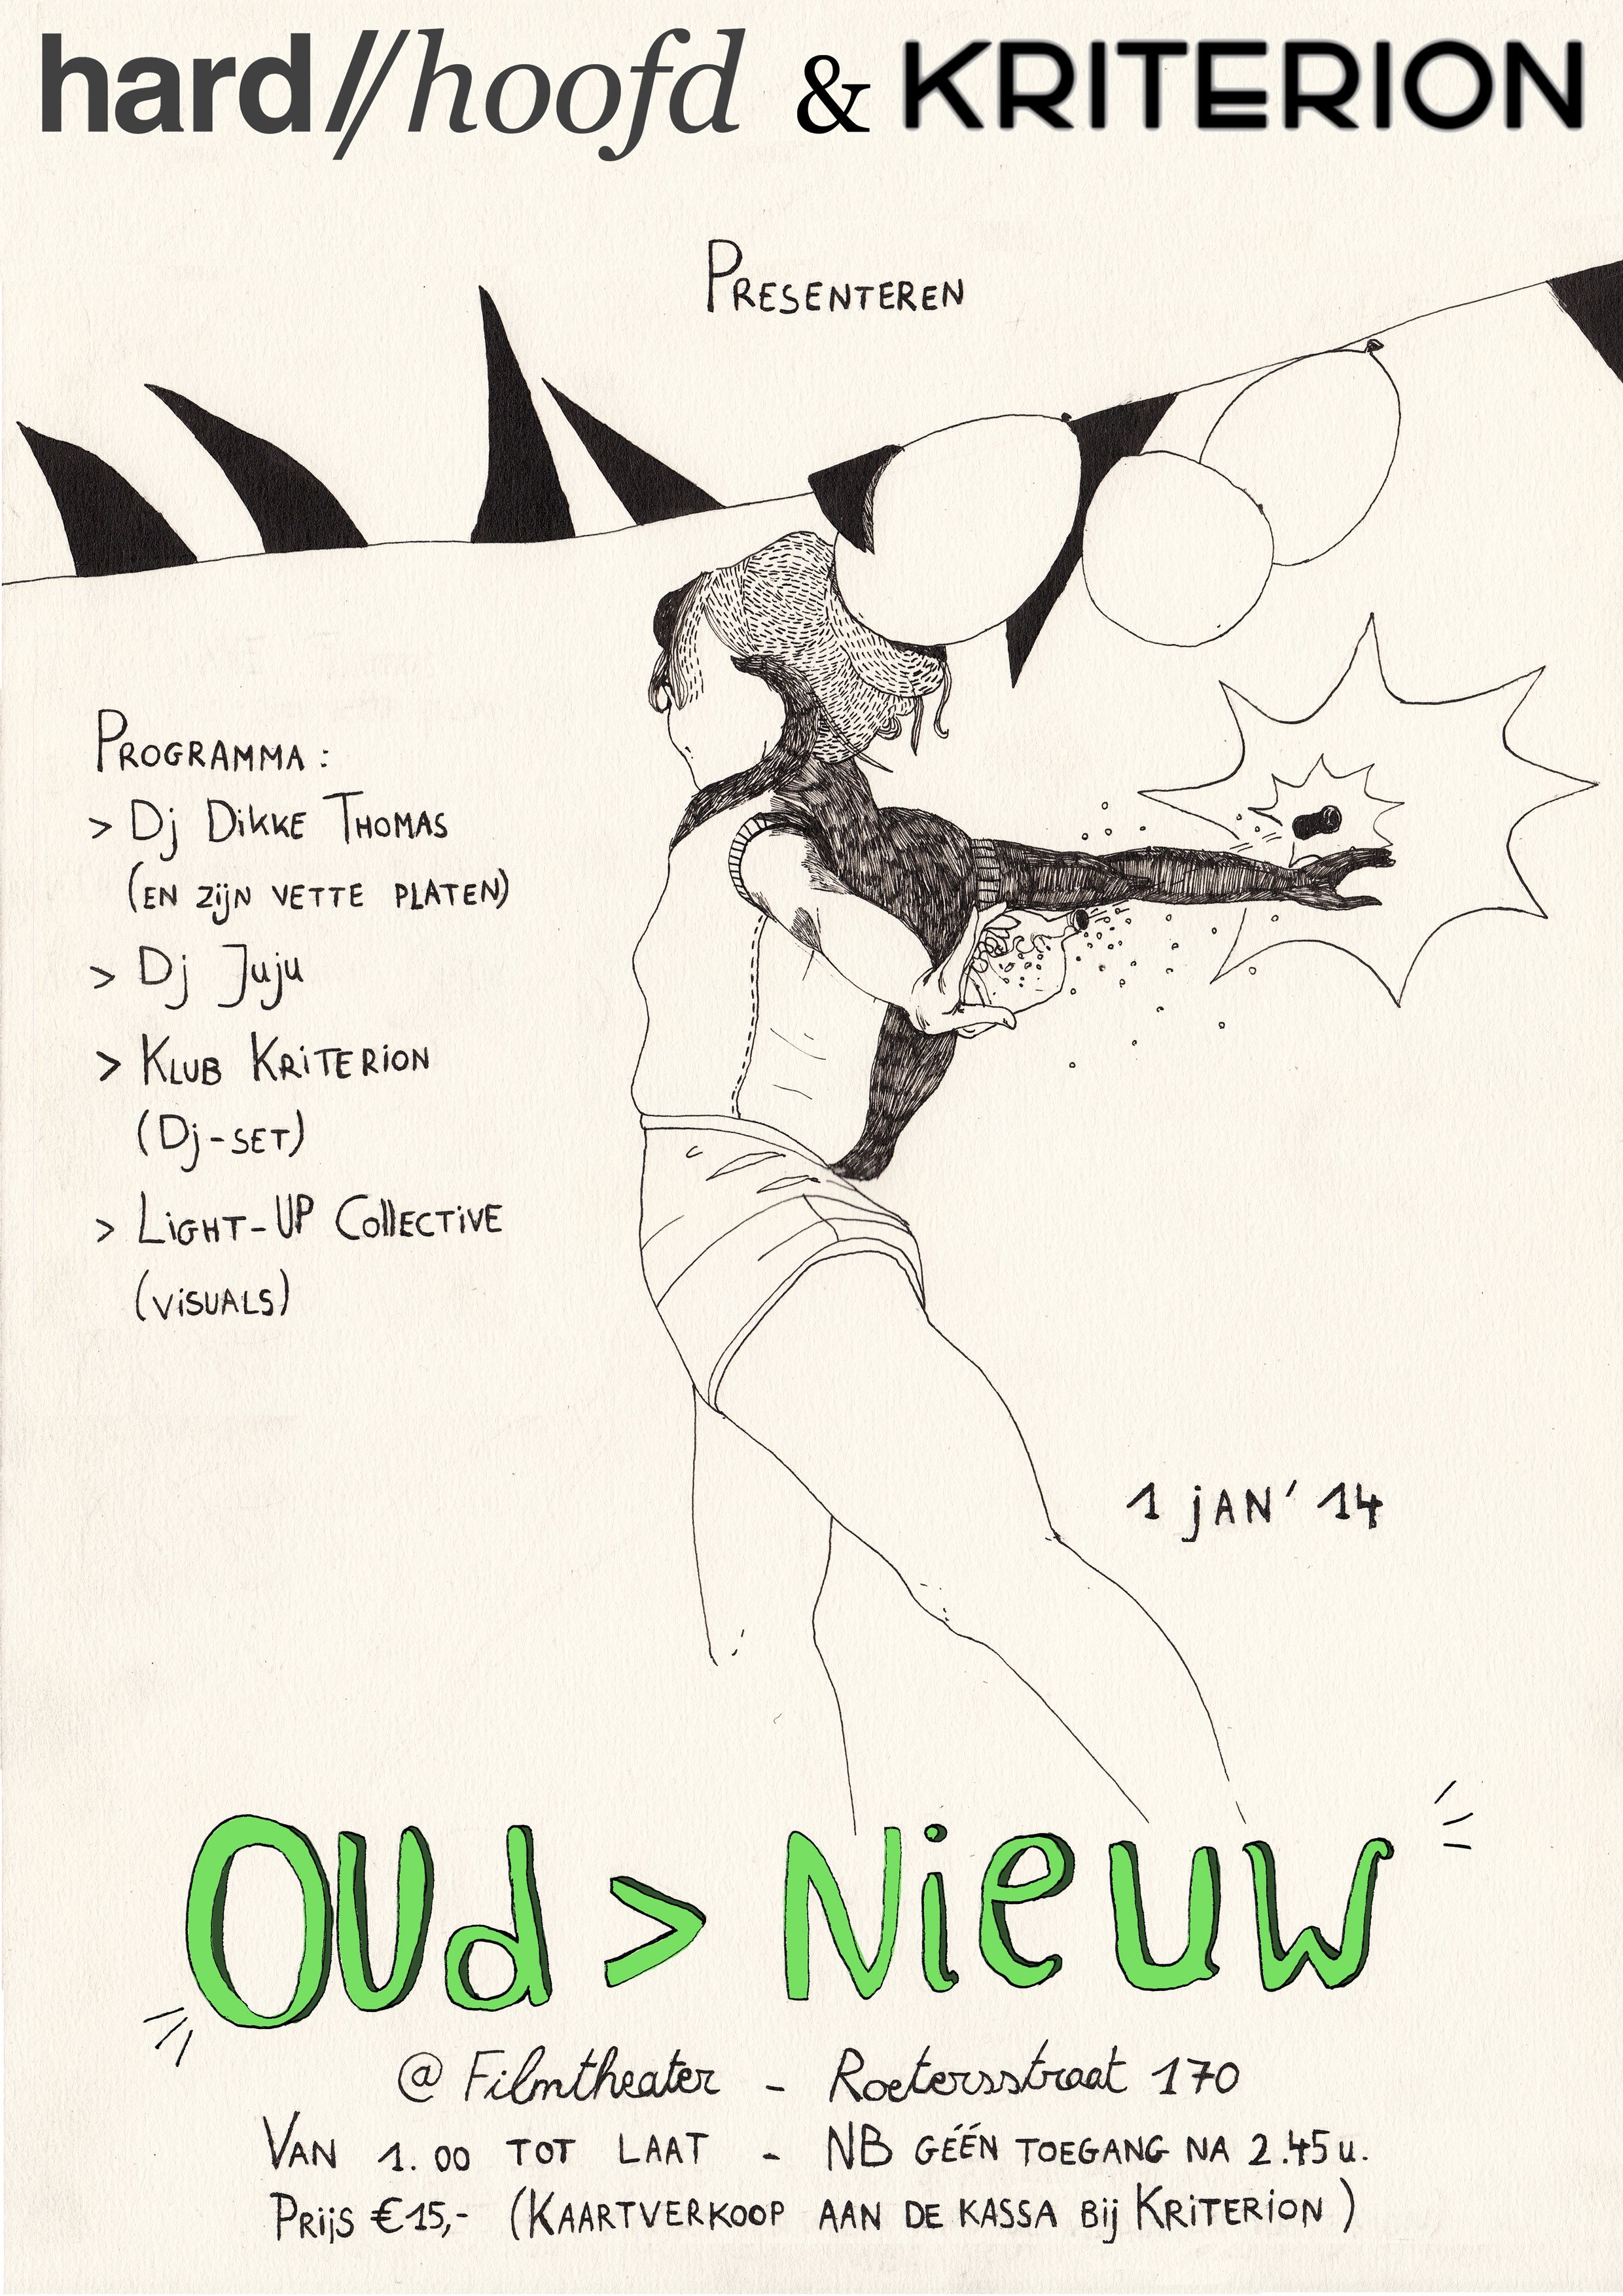 hard//hoofd & KRITERION
PRESENTEREN
PROGRAMMA:
> Dj DiKKE THOMAS
(EN ZijN VETTE PLATEN)
> Dj Juju
> KLUB KRiTERiON
(Dj-SET)
> LiGHT-UP CollECTiVE
(ViSUALS)
1 jAN' 14
OUd > Nieuw
@ Filmtheater - Roetersstraat 170
VAN 1.00 TOT LAAT - NB GÉÉN TOEGANG NA 2.45 u.
PRijS €15,- (KAARTVERKOOP AAN DE KASSA Bij KRiTERiON)